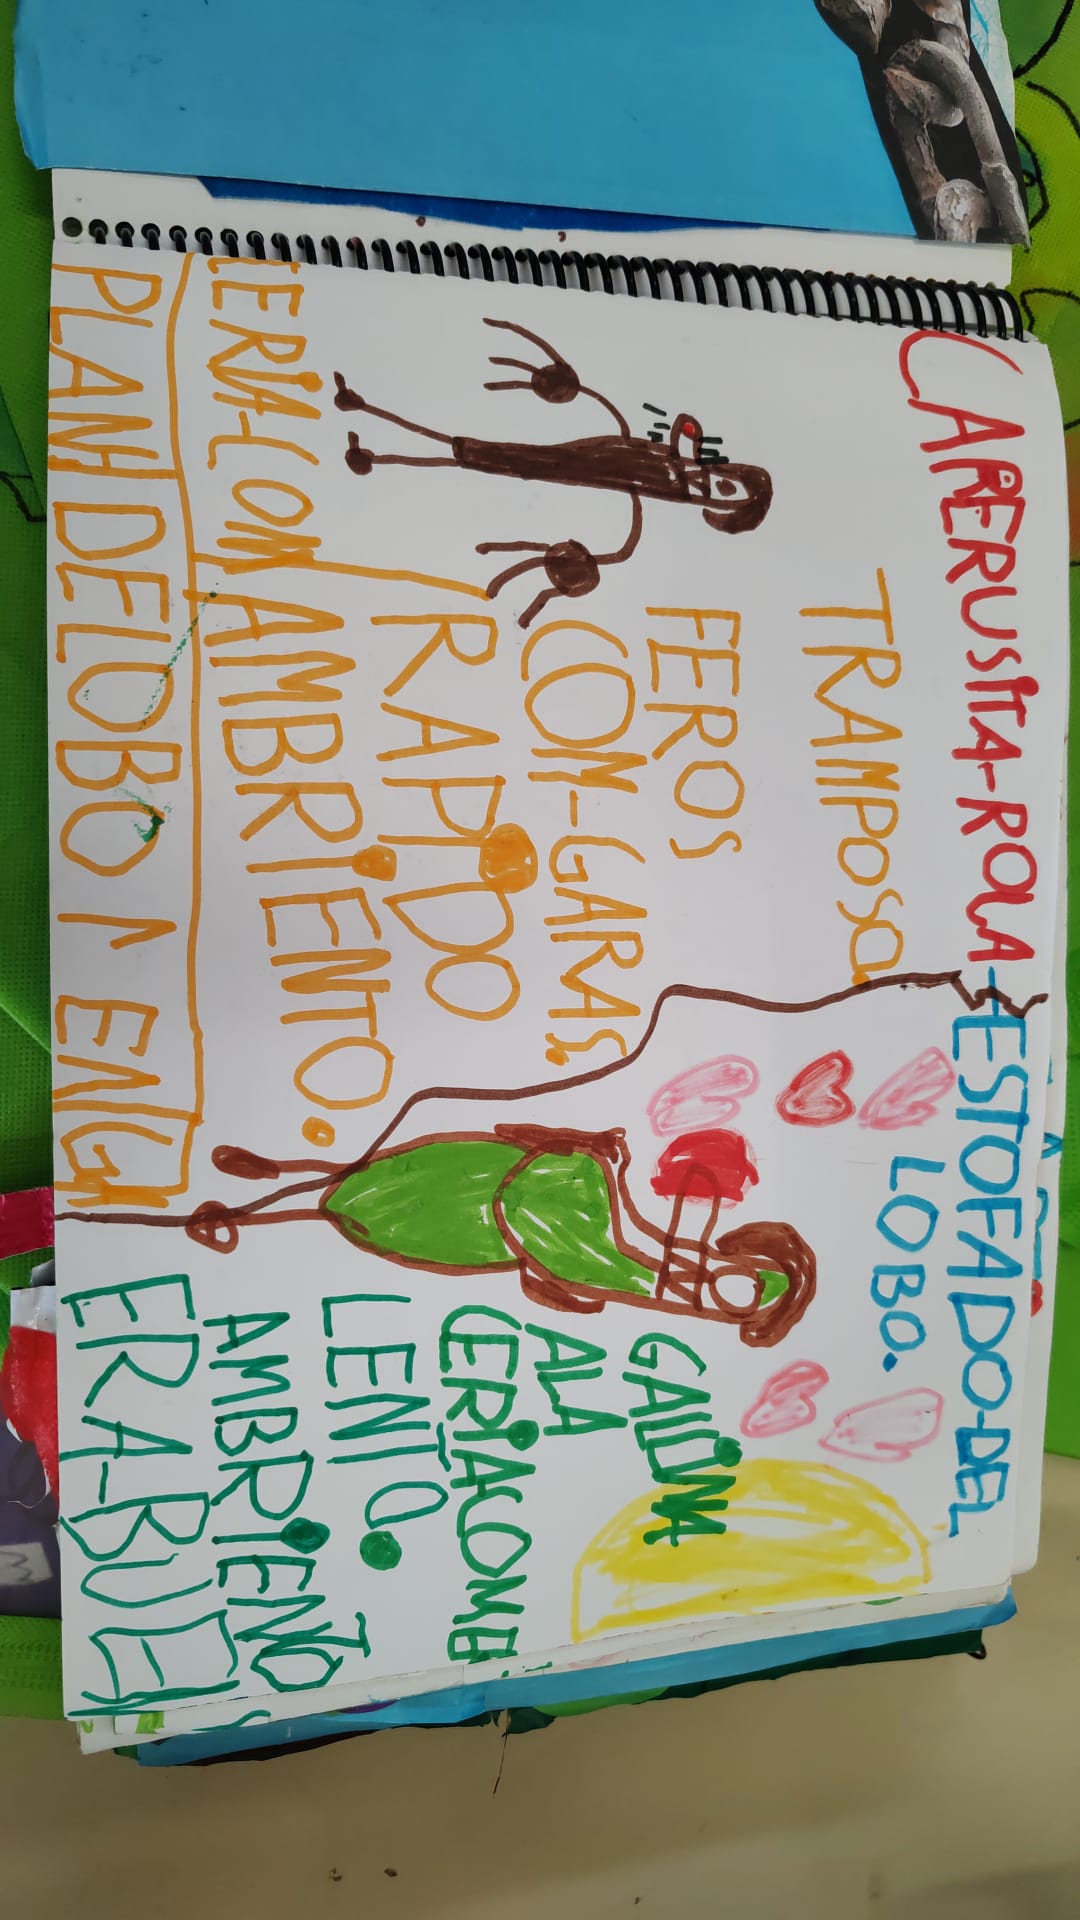 CAPERUSITA-ROLA-ESTOFADO-DEL
LOBO.
TRAMPOSO
FEROS
CON-GARAS.
RAPIDO
ERIA-COM
AMBRIENTO.
PLAN DELOBO 1 ENG
GALLINA
ALA
LENTO.
AMBRIENTO